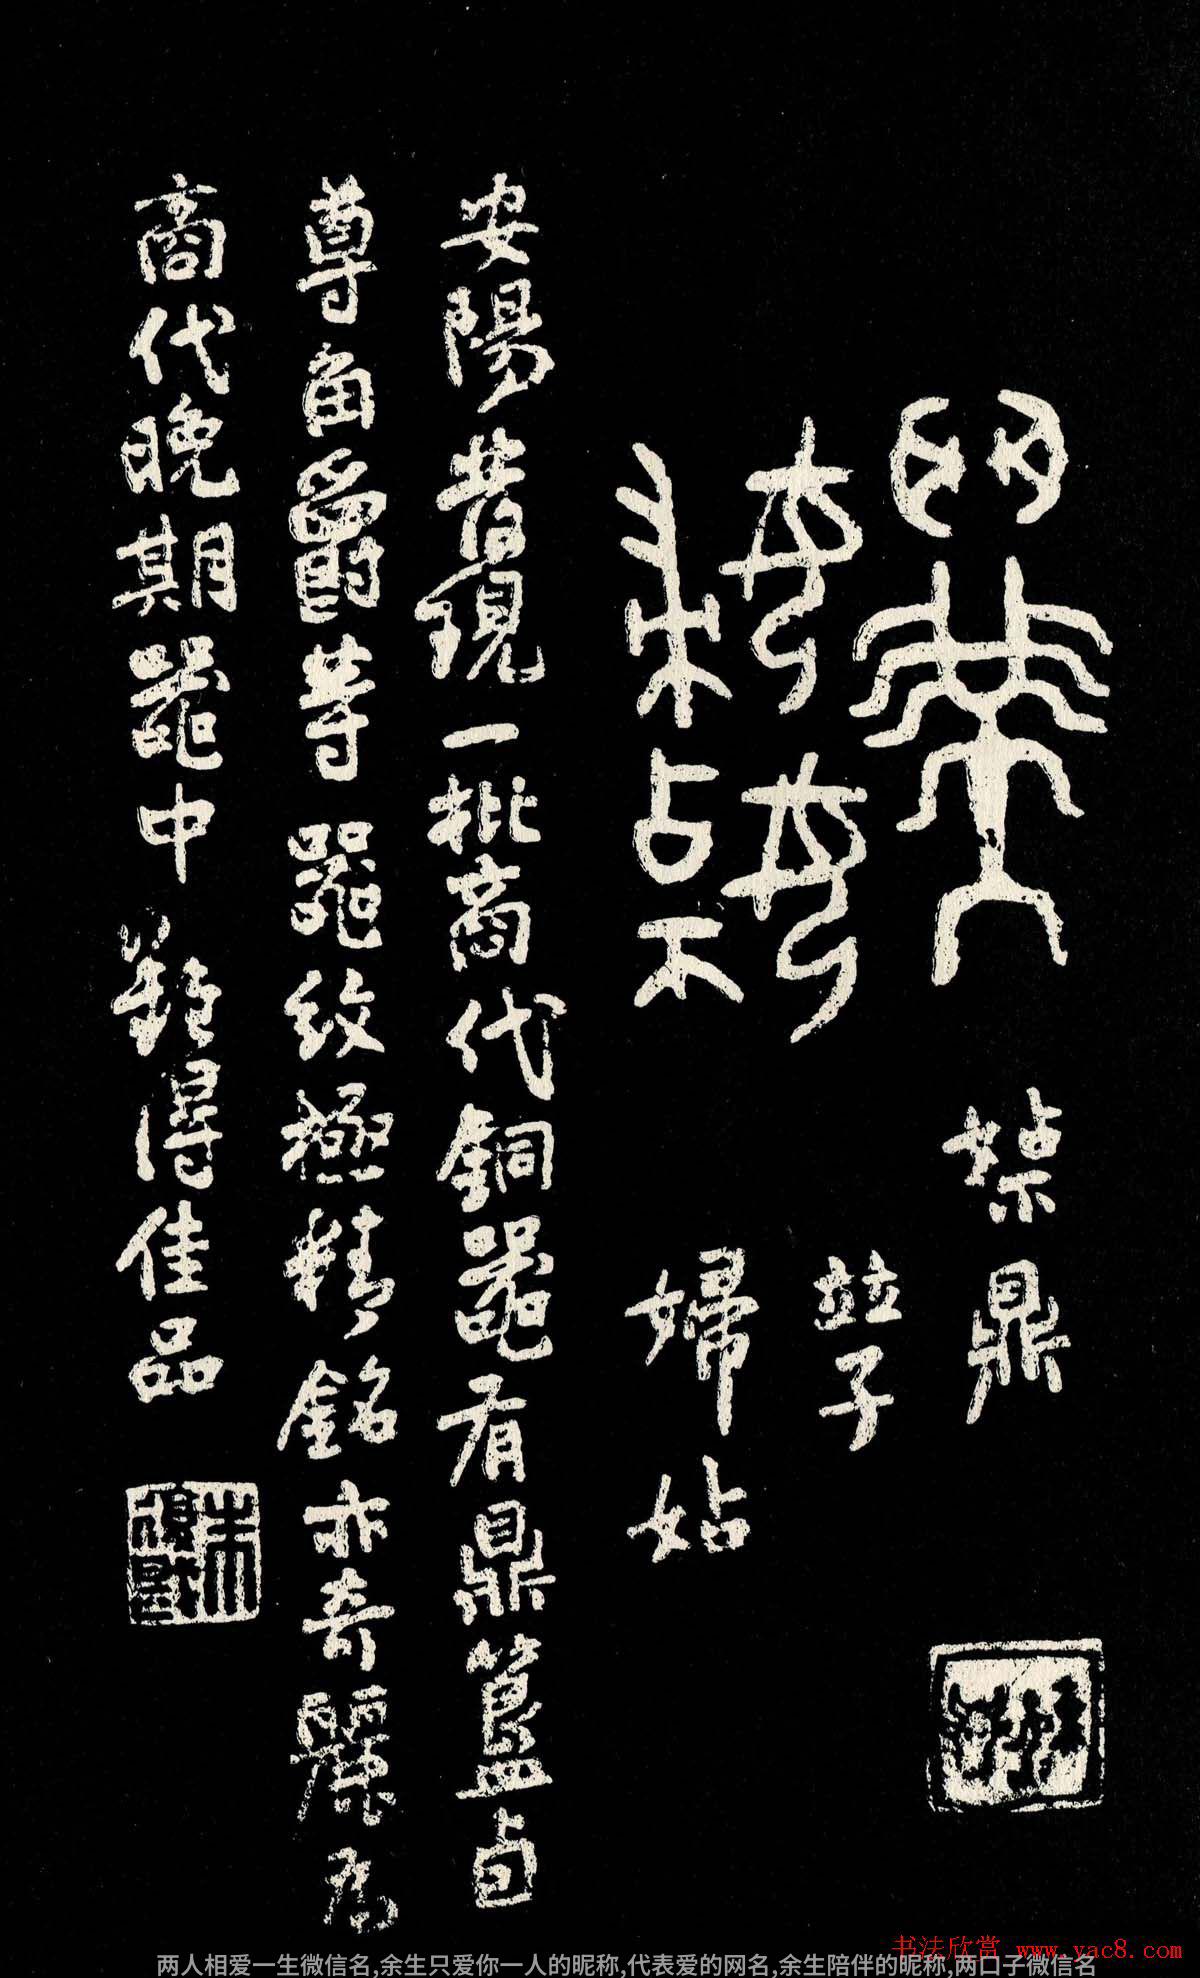 婥鼎
竝子
婦姑
安陽昔現一批商代銅器有鼎簋卣
尊角爵等器紋極精銘亦奇麗為
商代晚期器中難得佳品
朱復戡
书法欣赏 www.yac8.com
两人相爱一生微信名,余生只爱你一人的昵称,代表爱的网名,余生陪伴的昵称,两口子微信名